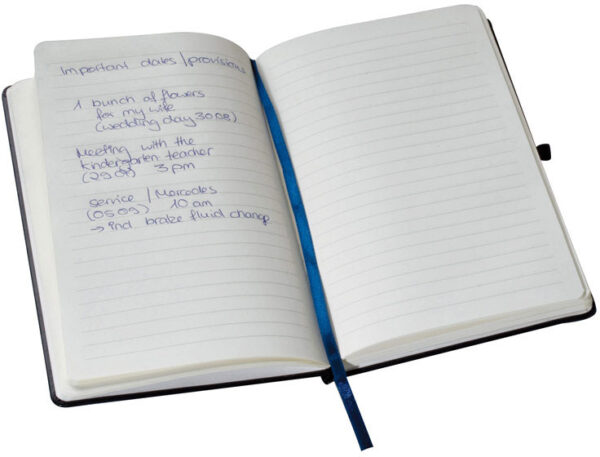 Important dates | provisions
1 bunch of flowers
for my wife
(wedding day 30 08)
Meeting with the
kindergarten teacher
(29 09) 3 pm
service | Mercedes
(05 09) 10 am
→ incl. brake fluid change